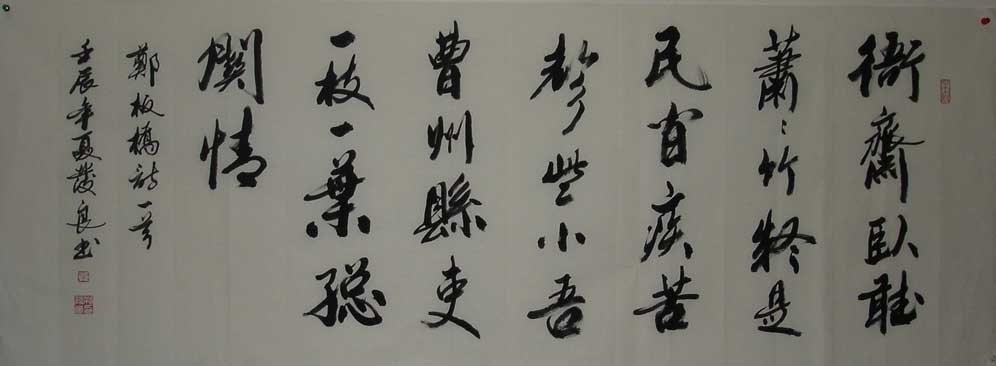 衙齋臥聽
蕭〻竹疑是
民间疾苦
聲些小吾
曹州縣吏
一枝一葉總
關情
鄭板橋詩一首
壬辰年夏發良书